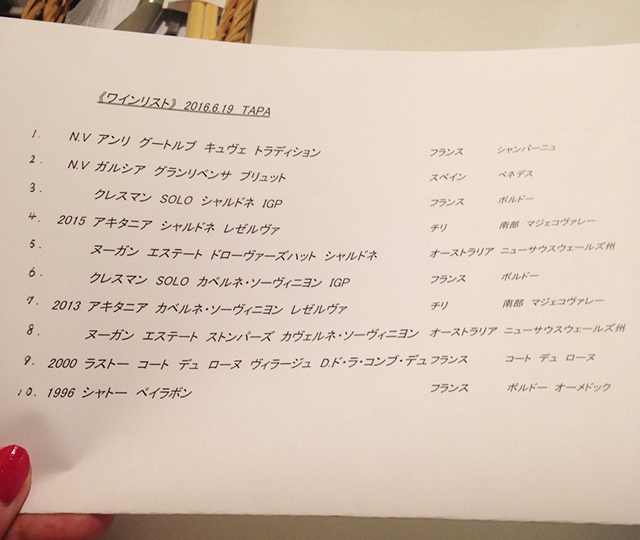 《ワインリスト》 2016.6.19 TAPA
1. N.V アンリ グートルブ キュヴェ トラディション フランス シャンパーニュ
2. N.V ガルシア グランリベンサ ブリュット スペイン ペネデス
3. クレスマン SOLO シャルドネ IGP フランス ボルドー
4. 2015 アキタニア シャルドネ レゼルヴァ チリ 南部 マジェコヴァレー
5. ヌーガン エステート ドローヴァーズハット シャルドネ オーストラリア ニューサウスウェールズ州
6. クレスマン SOLO カベルネ・ソーヴィニヨン IGP フランス ボルドー
7. 2013 アキタニア カベルネ・ソーヴィニヨン レゼルヴァ チリ 南部 マジェコヴァレー
8. ヌーガン エステート ストンパーズ カヴェルネ・ソーヴィニヨン オーストラリア ニューサウスウェールズ州
9. 2000 ラストー コート デュ ローヌ ヴィラージュ D.ド・ラ・コンブ・デュ フランス コート デュ ローヌ
10. 1996 シャトー ペイラボン フランス ボルドー オーメドック